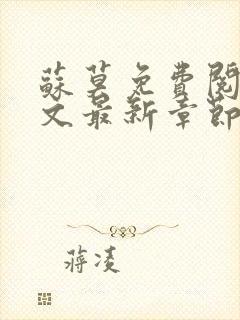 蘇莫免費閱
文最新章節
蔣凌